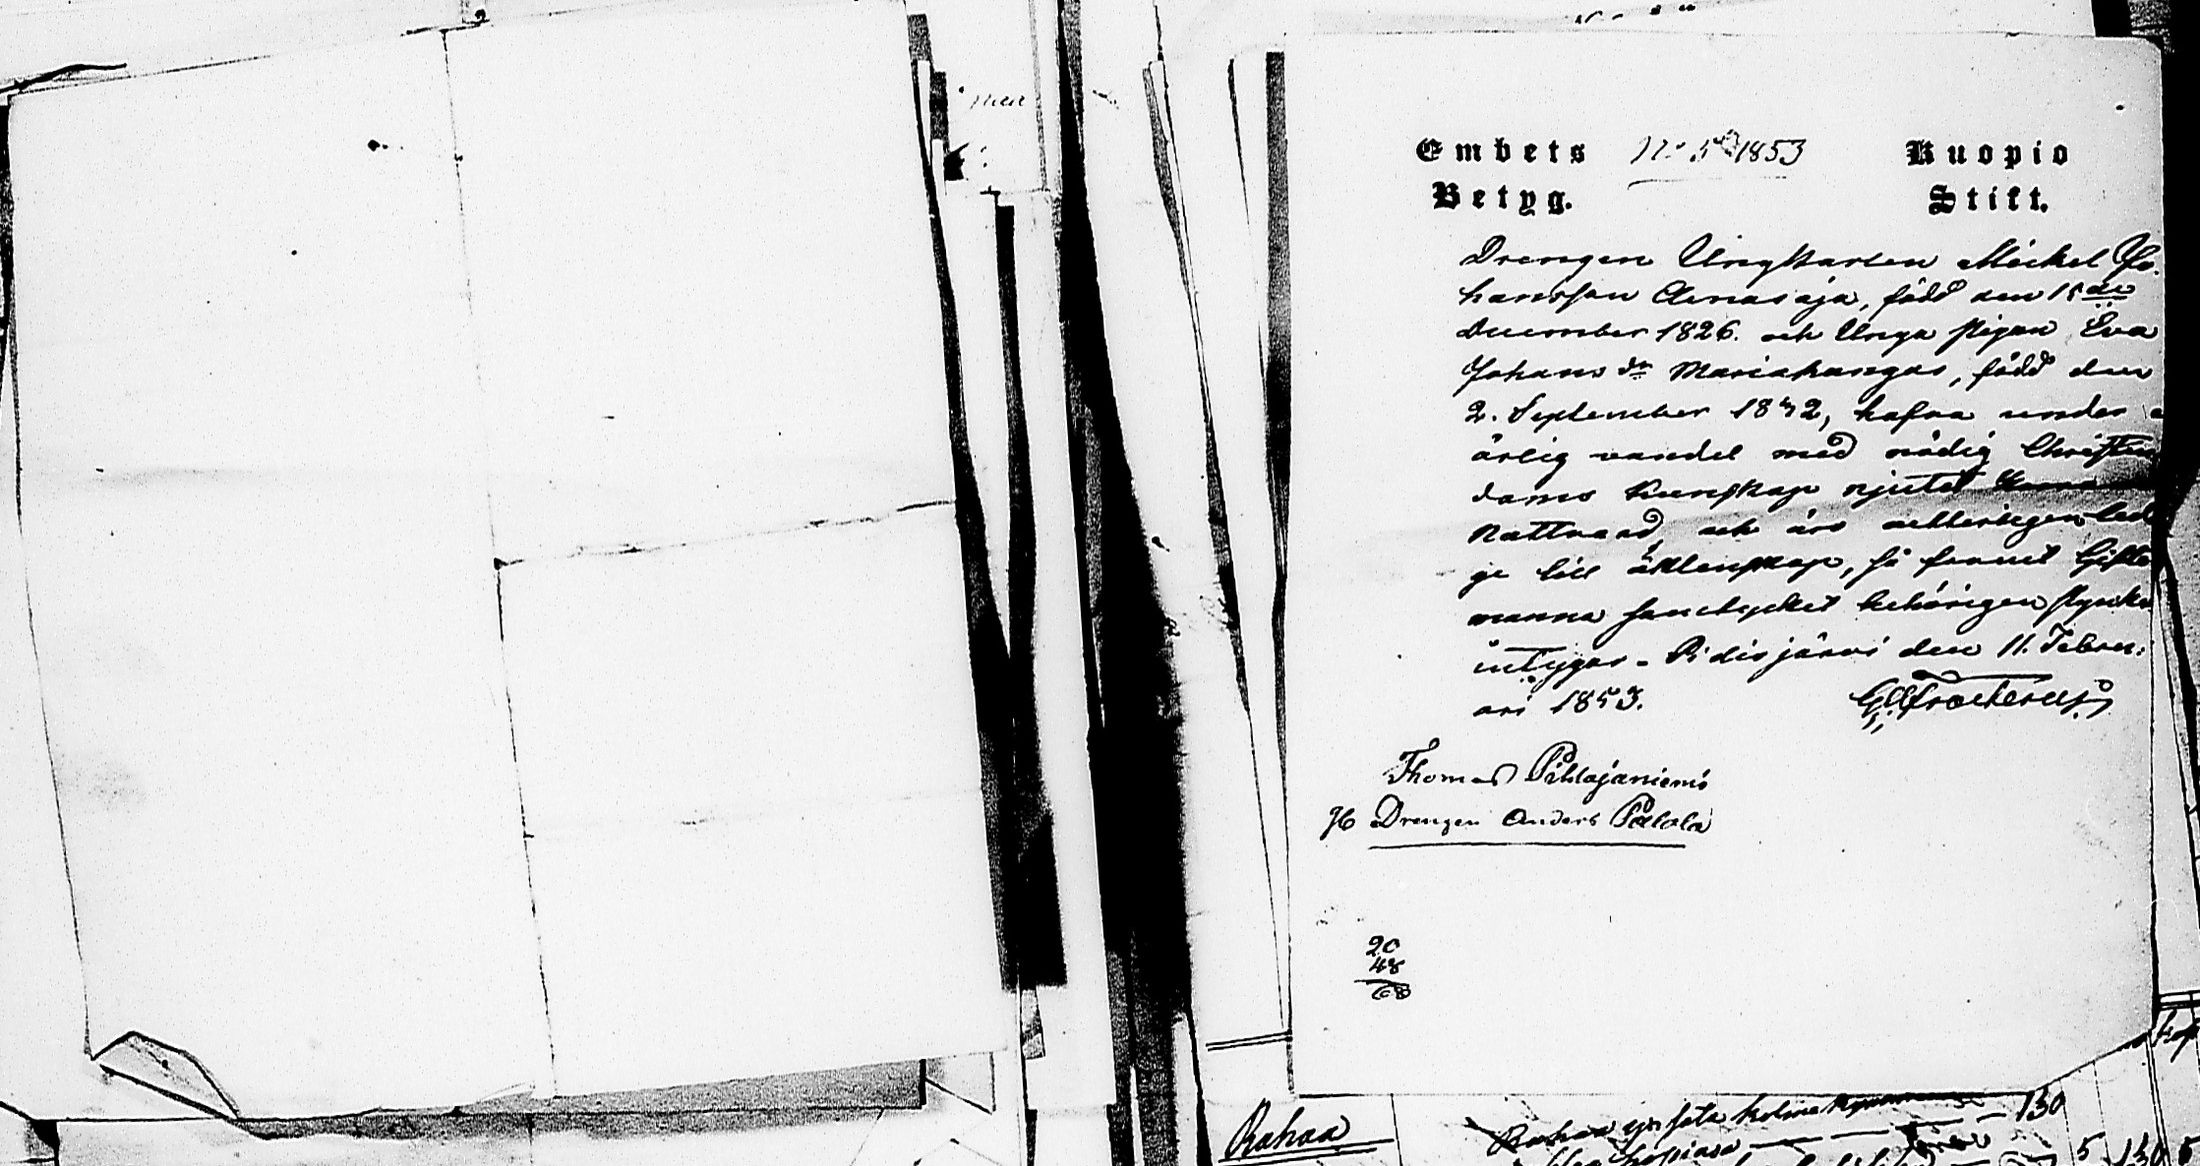 Embets Betyg.
No 5 1853
Kuopio Stift.
Drengen Ungkarlen Mickel Jo-
hansson Ainasoja, född den 15de
December 1826. och Unga pigan Eva
Johans dr Mariakangas, född den
2. September 1832, hafva under
ärlig vandel med nödig Christen
doms kunskap njutit
Nattvard, och äro vetterligen ledi
ge till äktenskap, så framt Gifto
manna samtycket behörigen styrkes
intygar. Pidisjärvi den 11. Febru:
ari 1853.
Thomas Pihlajaniemi
Drengen Anders Palola
20
48
68
Rahaa
130
5 130 5